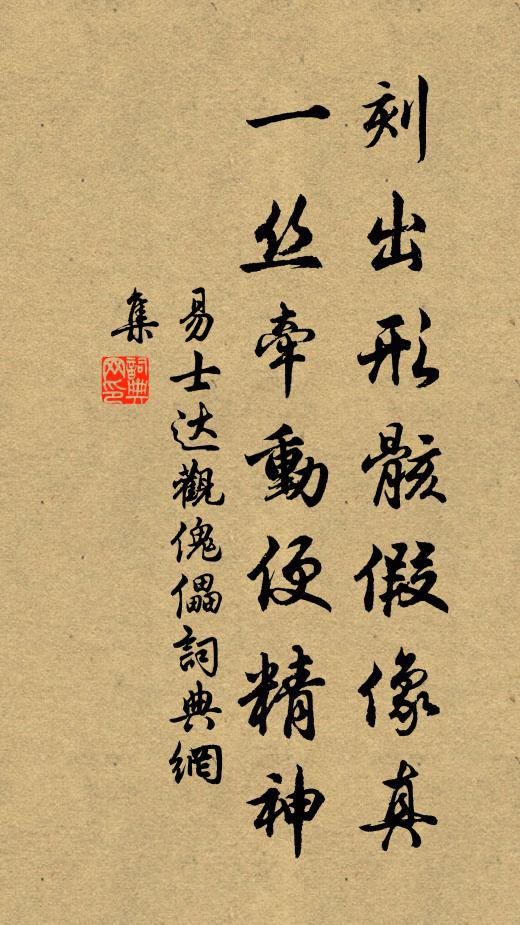 刻出形骸假像真
一丝牽動便精神
易士达觀傀儡詞典網
集
詞典网印